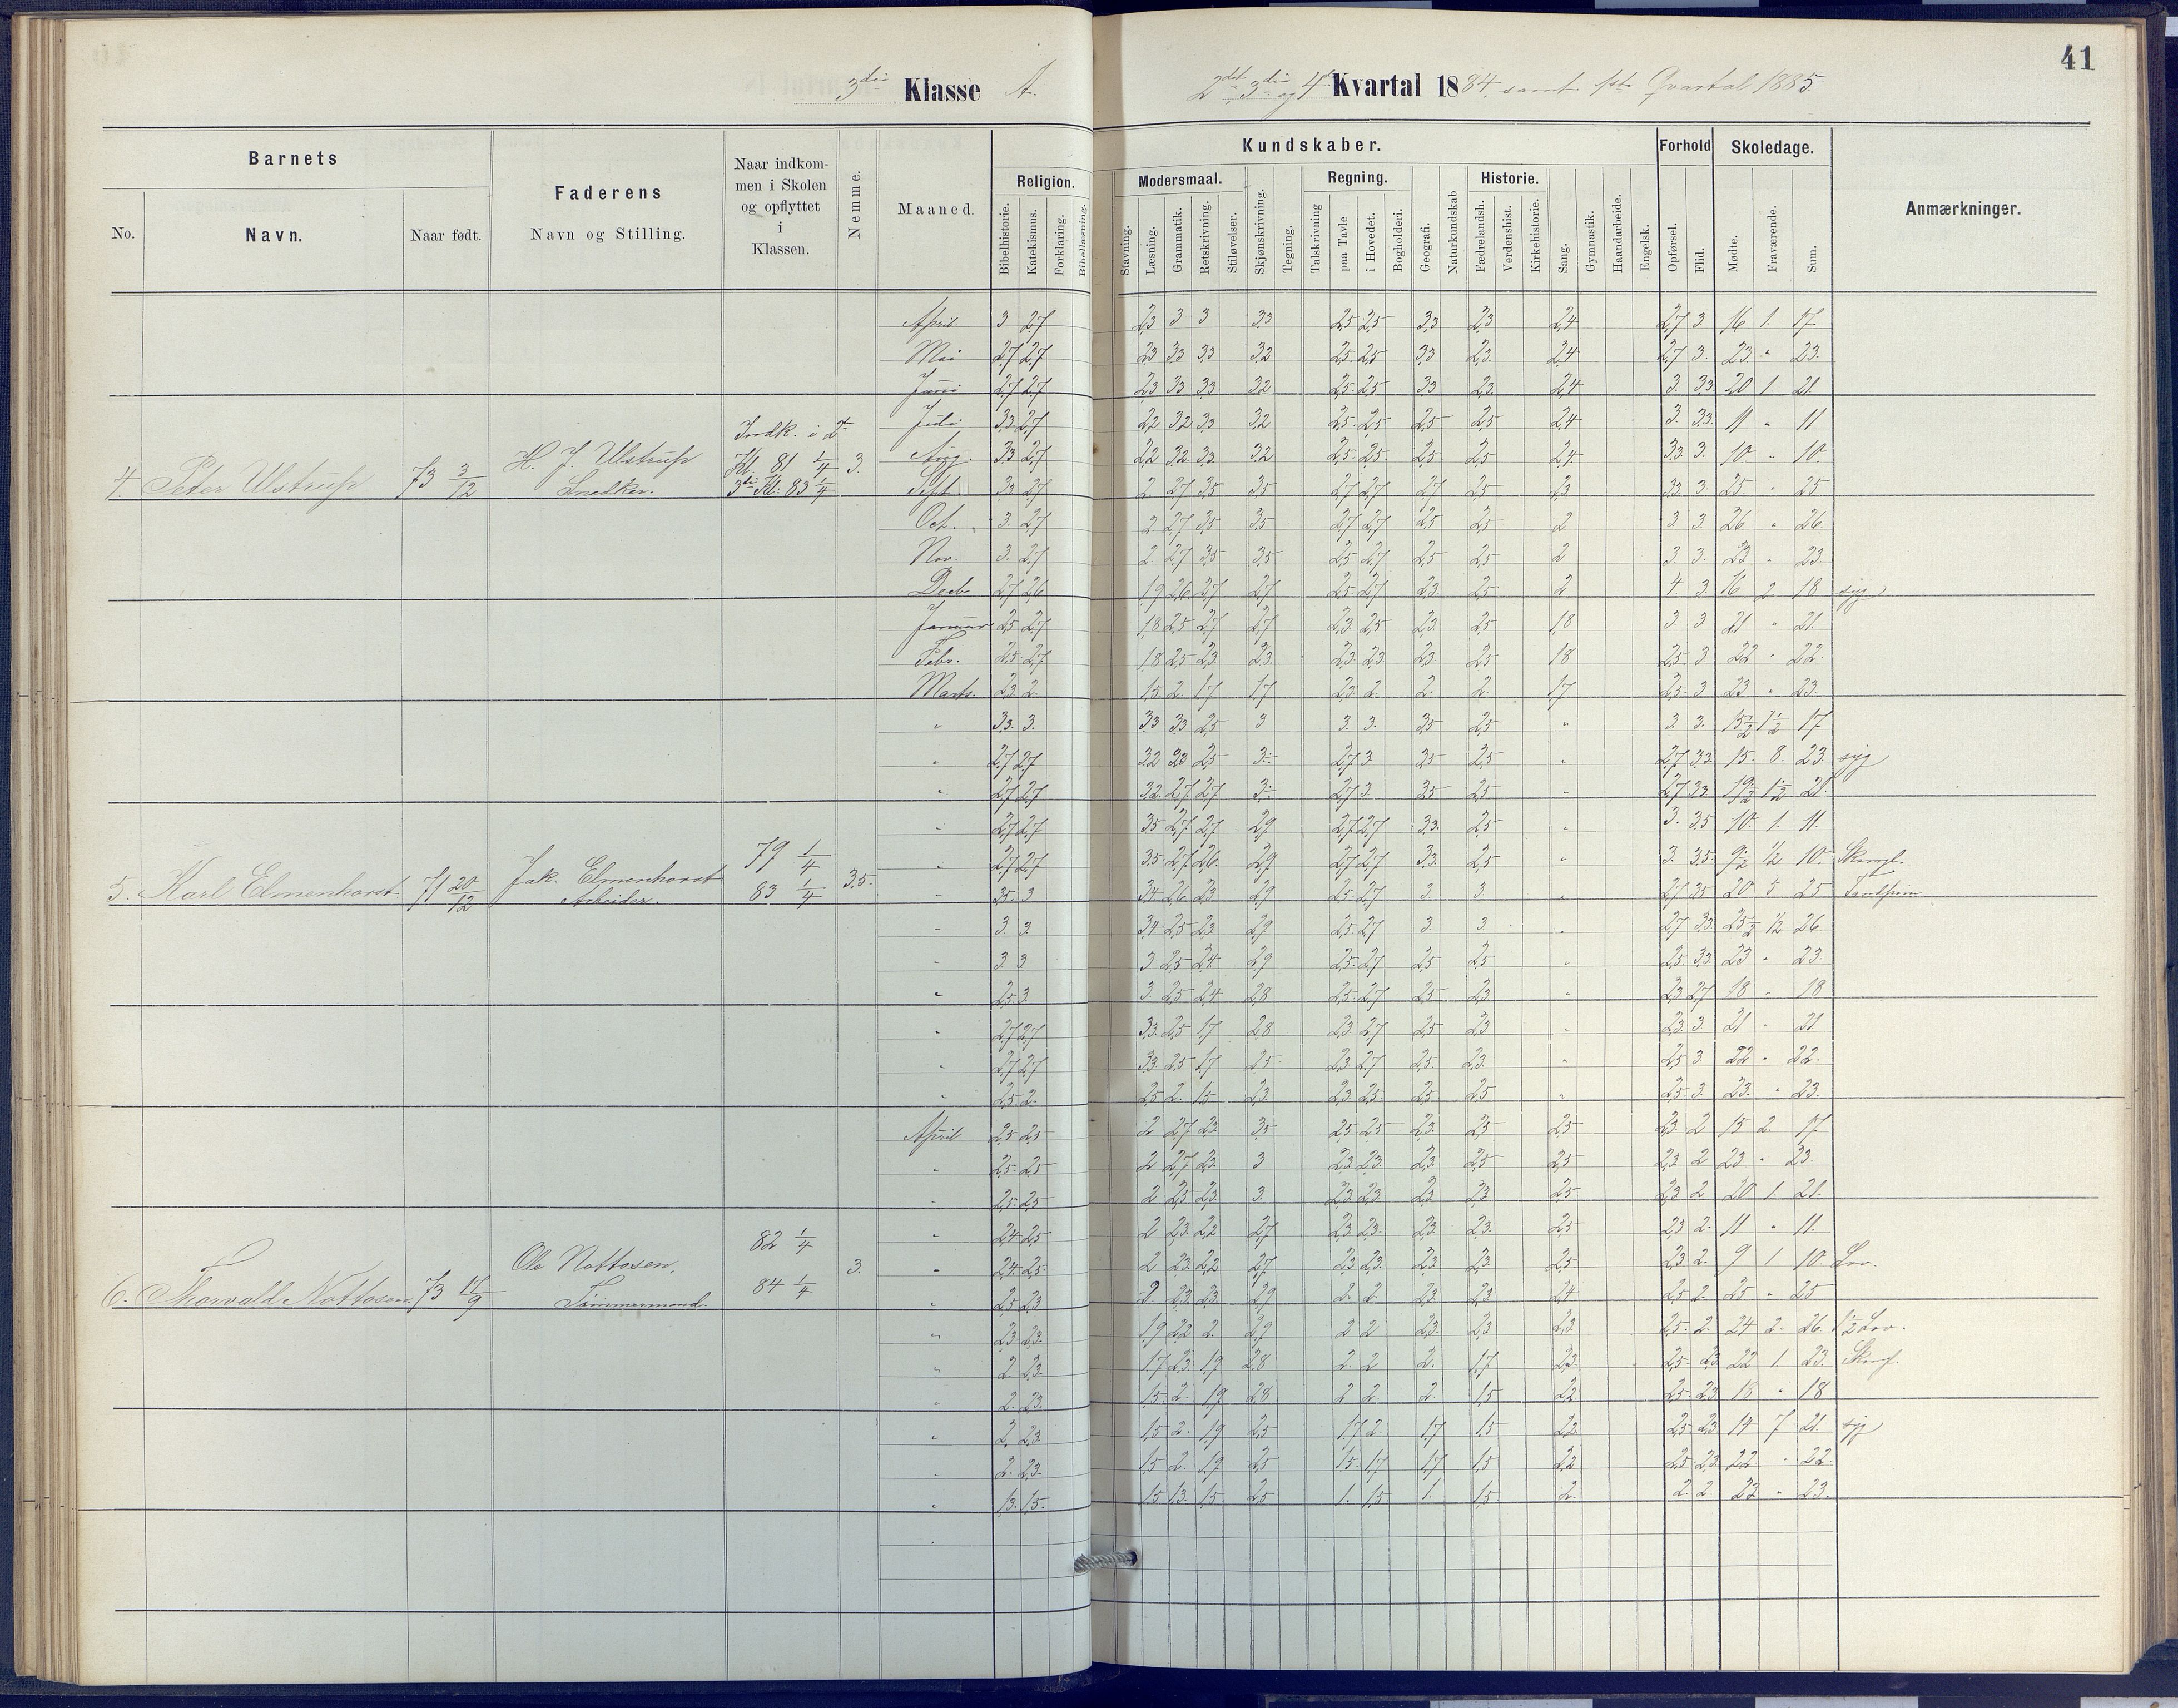 41
3die Klasse A.
2det 3die og 4de Kvartal 1884, samt 1ste Qvartal 1885.
Barnets
No.
Navn.
Naar født.
Faderens
Navn og Stilling.
Naar indkom-
men i Skolen
og opflyttet
i
Klassen.
Nemme.
Maaned.
Kundskaber.
Religion.
Bibelhistorie.
Katekismus.
Forklaring.
Bibellæsning.
Modersmaal.
Stavning.
Læsning.
Grammatik.
Retskrivning.
Stiløvelser.
Skjønskrivning.
Tegning.
Regning.
Talskrivning
paa Tavle
i Hovedet.
Bogholderi.
Geografi.
Naturkundskab
Historie.
Fædrelandsh.
Verdenshist.
Kirkehistorie.
Sang.
Gymnastik.
Haandarbeide.
Engelsk.
Forhold
Opførsel.
Flid.
Skoledage.
Mødte.
Fraværende.
Sum.
Anmærkninger.
4. Peter Ulstrup 73 3/12 H. J. Ulstrup Snedker. Indk. i 2den Kl. 81 1/4 3die Kl. 83 1/4 3.
April 3 2,7 2,3 3 3 3,3 2,5 2,5 3,3 2,3 2,4 2,7 3. 16 1. 17
Mai 2,7 2,7 2,3 3,3 3,3 3,2 2,5 2,5 3,3 2,3 2,4 2,7 3. 23 " 23.
Juni 2,7 2,7 2,3 3,3 3,3 3,2 2,5 2,5 3,3 2,3 2,4 3. 3,3 20 1. 21.
Juli 3,3 2,7 2,2 3,2 3,3 3,2 2,5 2,5 2,5 2,5 2,4 3. 3,3 11 " 11
Aug. 3,3 2,7 2,2 3,2 3,3 3,2 2,5 2,5 2,5 2,5 2,4 3,3 3. 10 " 10.
Sept. 3,3 2,7 2. 2,7 3,5 3,5 2,7 2,7 2,7 2,5 2,3 3,3 3. 25 " 25
Oct. 3. 2,7 2 2,7 3,5 3,5 2,7 2,7 2,5 2,5 2 3 3. 26 " 26.
Nov. 3. 2,7 2. 2,7 3,5 3,5 2,5 2,7 2,5 2,5 2 3 3. 23 " 23.
Decb. 2,7 2,6 1,9 2,6 2,7 2,7 2,5 2,7 2,3 2,5 2 4. 3. 16 2 18 syg
Januar 2,5 2,7 1,8 2,5 2,7 2,7 2,3 2,5 2,3 2,5 1,8 3 3 21 " 21.
Febr. 2,5 2,7 1,8 2,5 2,3 2,3 2,3 2,3 2,3 2,5 1,8 2,5 3 22 " 22.
Marts. 2,3 2. 1,5 2. 1,7 1,7 2,3 2. 2. 2. 1,7 2,5 3 23 " 23.
5. Karl Elmenhorst 71 20/12 Jak. Elmenhorst Arbeider. 79 1/4 83 1/4 3,5.
" 3,3 3. 3,3 3,3 2,5 3 3. 3. 3,5 2,5 " 3. 3. 15 1/2 1 1/2 17
" 2,7 2,7 3,2 2,5 3. 2,7 3 3,5 2,5 " 2,7 3,3 15. 8. 23 syg
" 2,7 2,7 3,2 2,7 2,7 3. 2,7 3. 3,5 2,5 " 2,7 3,3 19 1/2 1 1/2 21
" 2,7 2,7 3,5 2,7 2,7 2,9 2,7 2,7 3,3 2,5 " 3. 3,5 10. 1. 11.
" 2,7 2,7 3,5 2,7 2,6 2,9 2,7 2,7 3,3 2,5 " 3. 3,5 9 1/2 1/2 10.
" 3,5 3 3,4 2,6 2,3 2,9 2,5 2,7 3. 3 " 2,7 3,5 20 5 25
" 3. 3 3,4 2,5 2,3 2,9 2,5 2,7 3 3. " 2,7 3,3 25 1/2 1/2 26.
" 3. 3 3. 2,5 2,4 2,9 2,5 2,7 2,5 2,5 " 2,5 3,3 23 " 23.
" 2,5 3 3. 2,5 2,4 2,8 2,5 2,7 2,5 2,3 " 2,3 2,7 18 " 18
" 2,7 2,7 3,3 2,5 1,7 2,8 2,3 2,7 2,5 2,3 " 2,3 3. 21 " 21.
" 2,7 2,7 3,3 2,5 1,7 2,5 2,3 2,7 2,5 2,3 " 2,5 3. 22 " 22.
" 2,5 2. 2,5 2. 1,5 2,3 2,3 2,5 2,5 2,5 " 2,5 3. 23. " 23.
6. Thorvald Nottosen 73 17/9 Ole Nottosen, Tømmermand. 82 1/4 84 1/4 3.
April 2,5 2,5 2 2,7 2,3 3,5 2,5 2,5 2,3 2,5 2,5 2,3 2 15 2. 17
" 2,5 2,5 2 2,7 2,3 3 2,3 2,3 2,3 2,5 2,5 2,3 2 23 " 23.
" 2,5 2,5 2 2,5 2,3 3. 2,3 2,3 2,3 2,3 2,5 2,3 2 20 1. 21.
" 2,4 2,5 2 2,3 2,2 2,7 2,3 2,3 2,3 2,3 2,5 2,3 2. 11 " 11.
" 2,4 2,5 2 2,3 2,2 2,7 2,3 2,3 2,3 2,3 2,5 2,3 2. 9 1 10. Lov.
" 2,5 2,3 2. 2,3 2,3 2,9 2. 2. 2,3 2,3 2,4 2,5 2. 25 " 25
" 2,3 2,3 1,9 2,2 2. 2,9 2 2 2,3 2,3 2,3 2,5 2. 24 2. 26. 1 1/2 Lov.
" 2. 2,3 1,7 2,3 1,9 2,8 2. 2 2. 1,7 2,3 2,5 2,3 22 1. 23.
" 2. 2,3 1,5 2. 1,9 2,8 2 2. 2. 1,5 2,2 2,5 2,3 18 " 18
" 2. 2,3 1,5 2. 1,9 2,5 1,7 2. 1,7 1,5 2,2 2,5 2,3 14 7 21. syg
" 2. 2,3 1,5 2. 1,9 2,5 1,5 1,7 1,7 1,5 2,2 2,5 2,3 22 " 22.
" 1,3 1,5 1,5 1,3 1,5 2,5 1. 1,5 1. 1,5 2. 2. 2. 23 " 23.